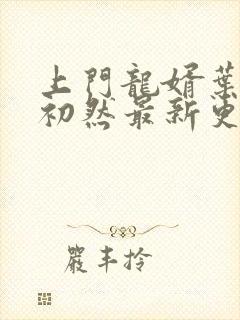 上門龍婿葉
初然最新更
嚴丰拎